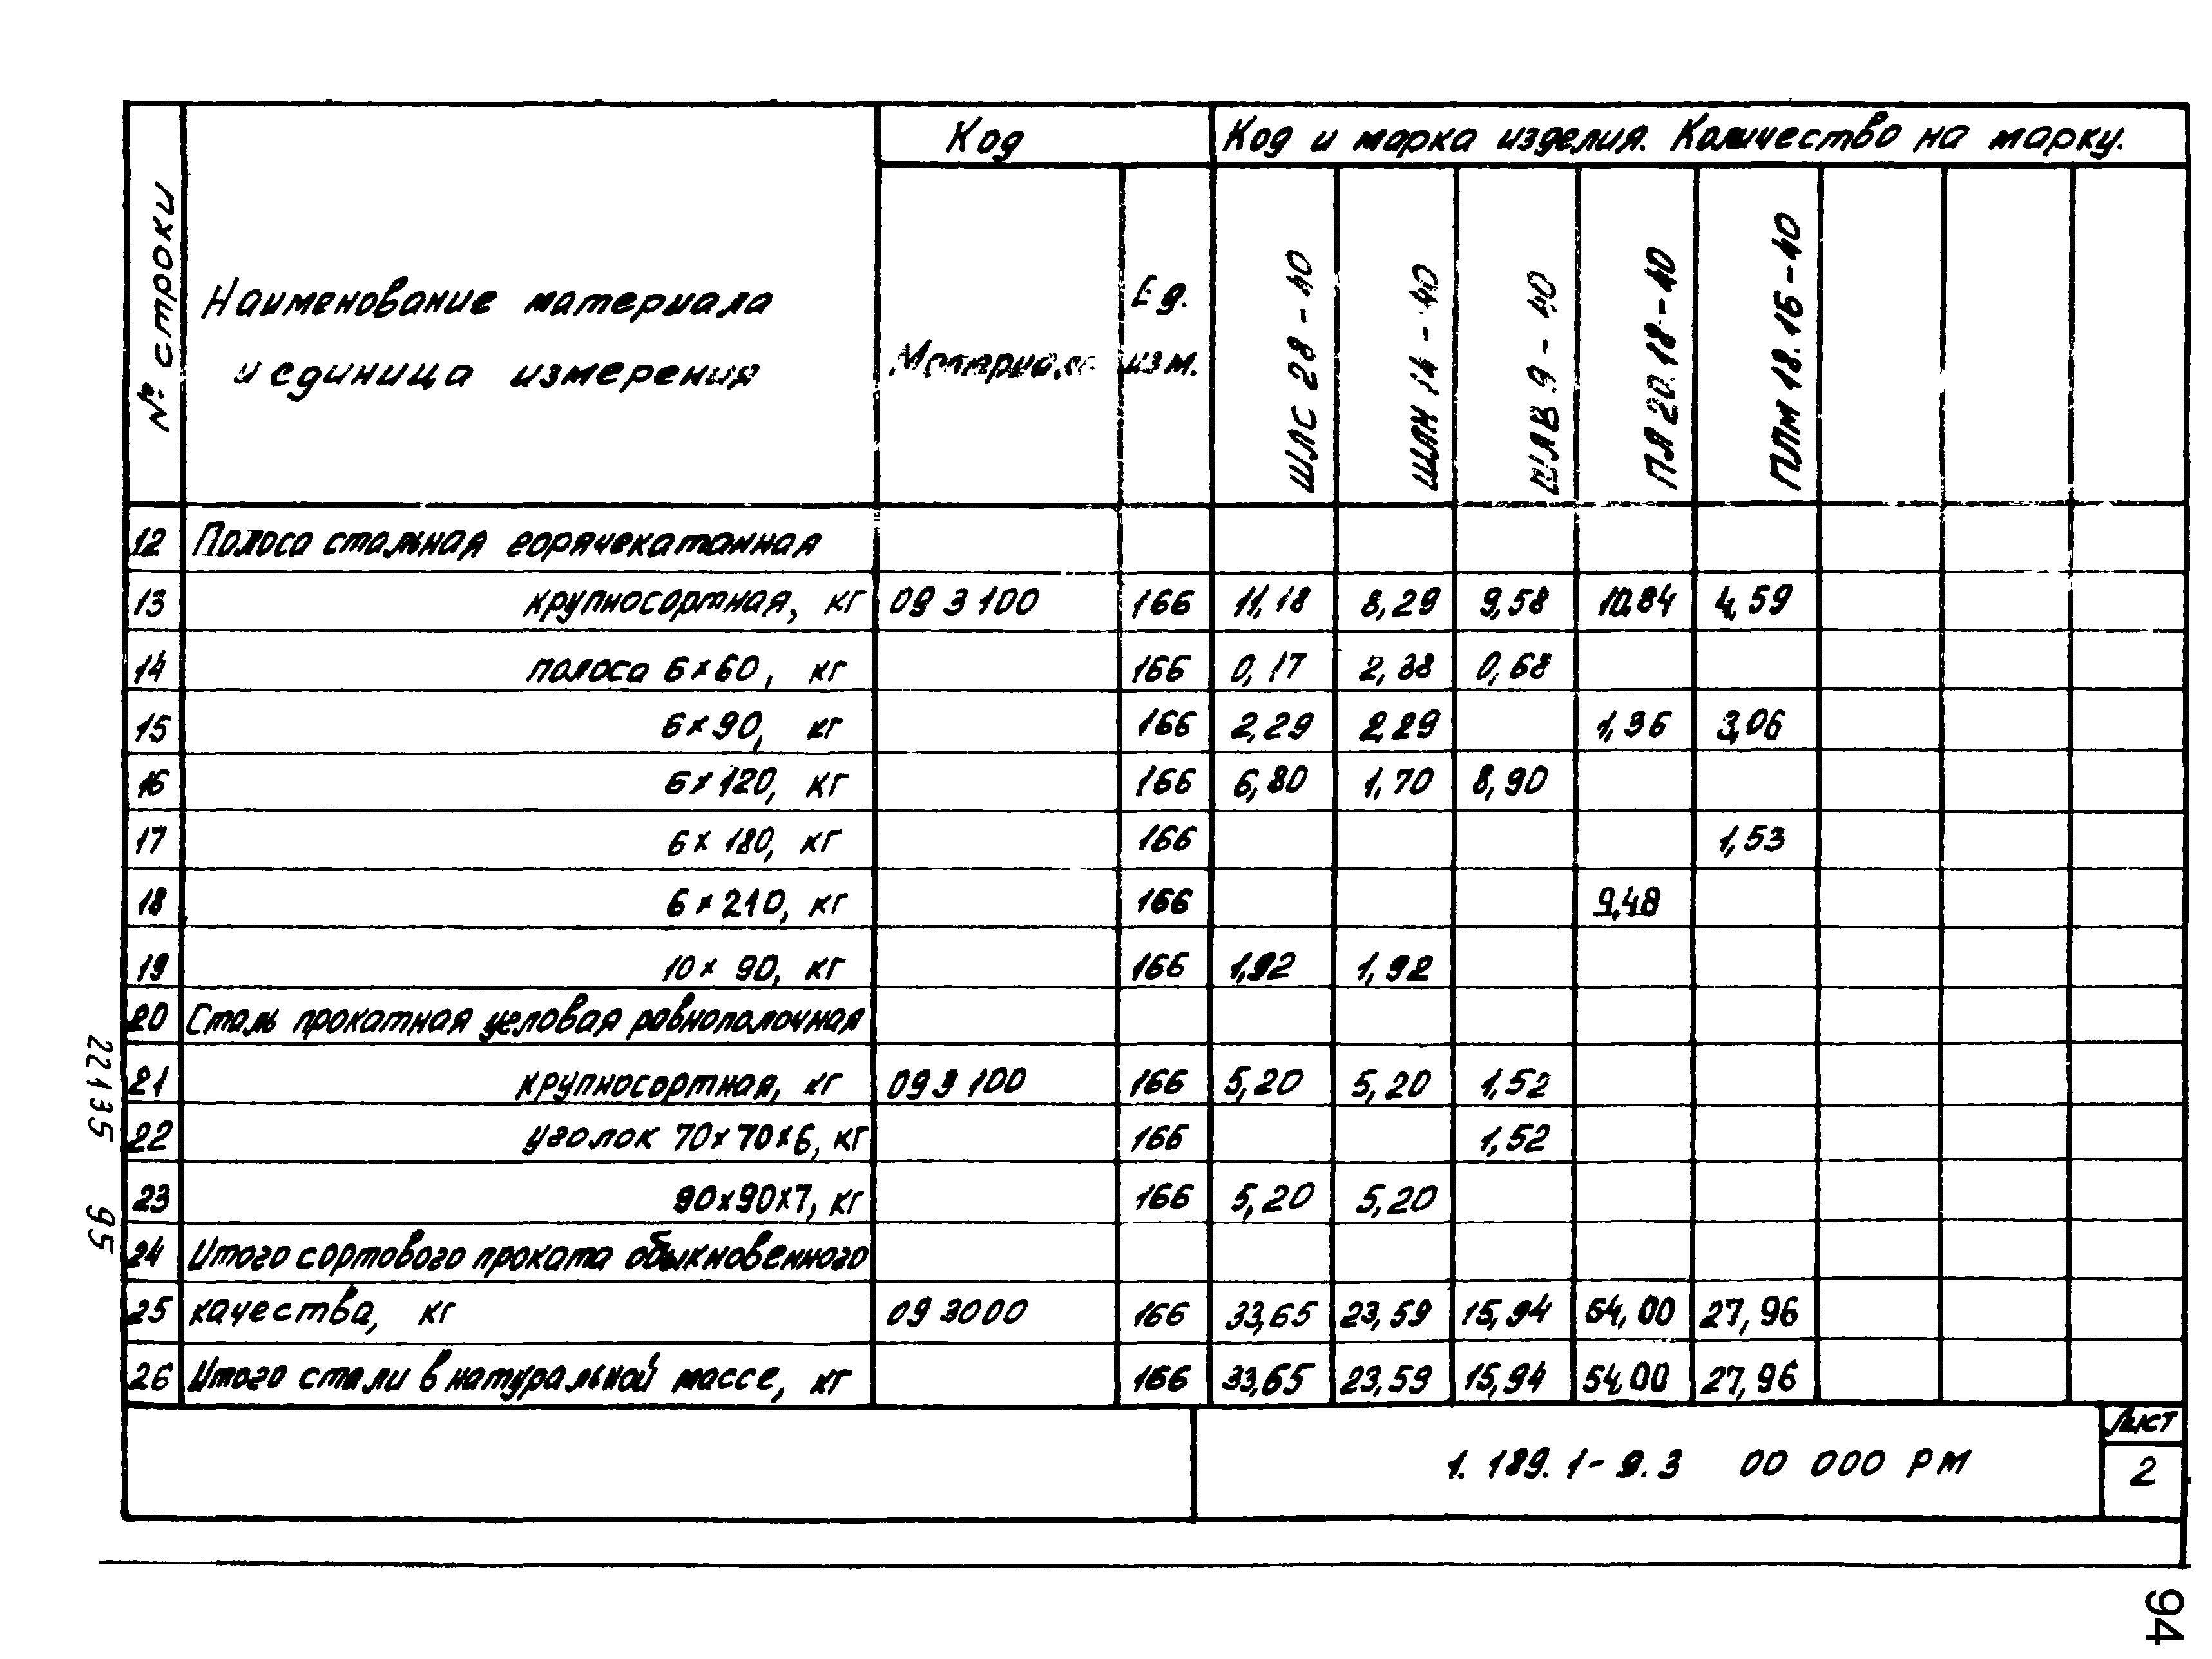 № строки
Наименование материала
и единица измерения
Код
Материала
Ед.
изм.
Код и марка изделия. Количество на марку.
ШЛС 28-40
ШЛН 14-40
ШЛВ 9-40
ПЛ 20.18-40
ПЛМ 18.16-40
12 Полоса стальная горячекатанная
13 крупносортная, кг 093100 166 11,18 8,29 9,58 10,84 4,59
14 полоса 6×60, кг 166 0,17 2,38 0,68
15 6×90, кг 166 2,29 2,29 1,36 3,06
16 6×120, кг 166 6,80 1,70 8,90
17 6×180, кг 166 1,53
18 6×210, кг 166 9,48
19 10×90, кг 166 1,92 1,92
20 Сталь прокатная угловая равнополочная
21 крупносортная, кг 093100 166 5,20 5,20 1,52
22 уголок 70×70×6, кг 166 1,52
23 90×90×7, кг 166 5,20 5,20
24 Итого сортового проката обыкновенного
25 качества, кг 093000 166 33,65 23,59 15,94 54,00 27,96
26 Итого стали в натуральной массе, кг 166 33,65 23,59 15,94 54,00 27,96
22135 95
1.189.1-9.3 00 000 РМ
Лист
2
94